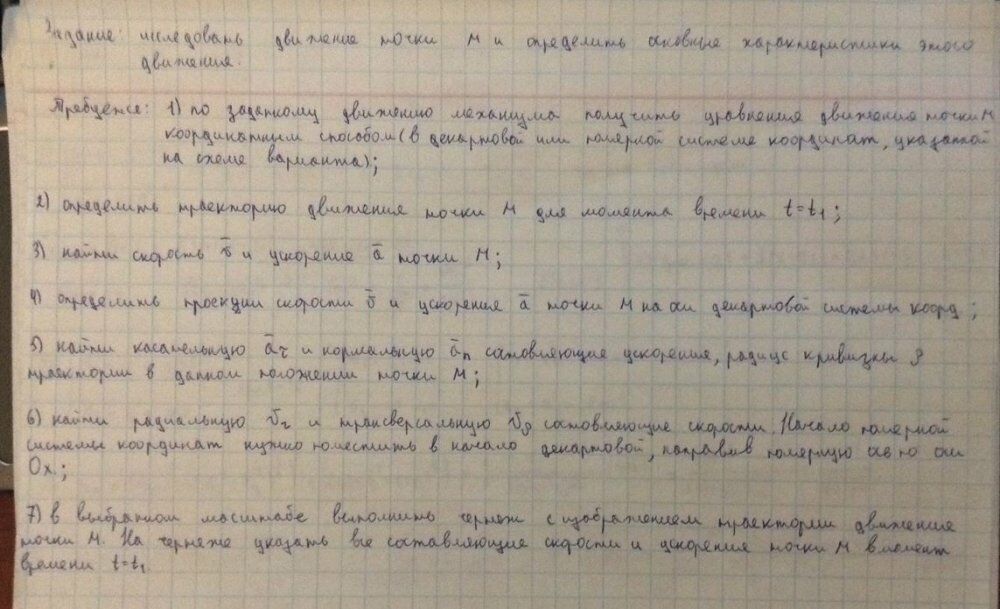 Задание: исследовать движение точки М и определить основные характеристики этого
движения.
Требуется: 1) по заданному движению механизма получить уравнения движения точки М
координатным способом (в декартовой или полярной системе координат, указанной
на схеме варианта);
2) определить траекторию движения точки М для момента времени t=t₁;
3) найти скорость v̄ и ускорение ā точки М;
4) определить проекции скорости v̄ и ускорения ā точки М на оси декартовой системы коорд;
5) найти касательную ā_τ и нормальную ā_n составляющие ускорения, радиус кривизны ρ
траектории в данном положении точки М;
6) найти радиальную v_r и трансверсальную v_φ составляющие скорости. Начало полярной
системы координат нужно поместить в начало декартовой, направив полярную ось по оси
Ox.;
7) в выбранном масштабе выполнить чертеж с изображением траектории движения
точки М. На чертеже указать все составляющие скорости и ускорения точки М в момент
времени t=t₁